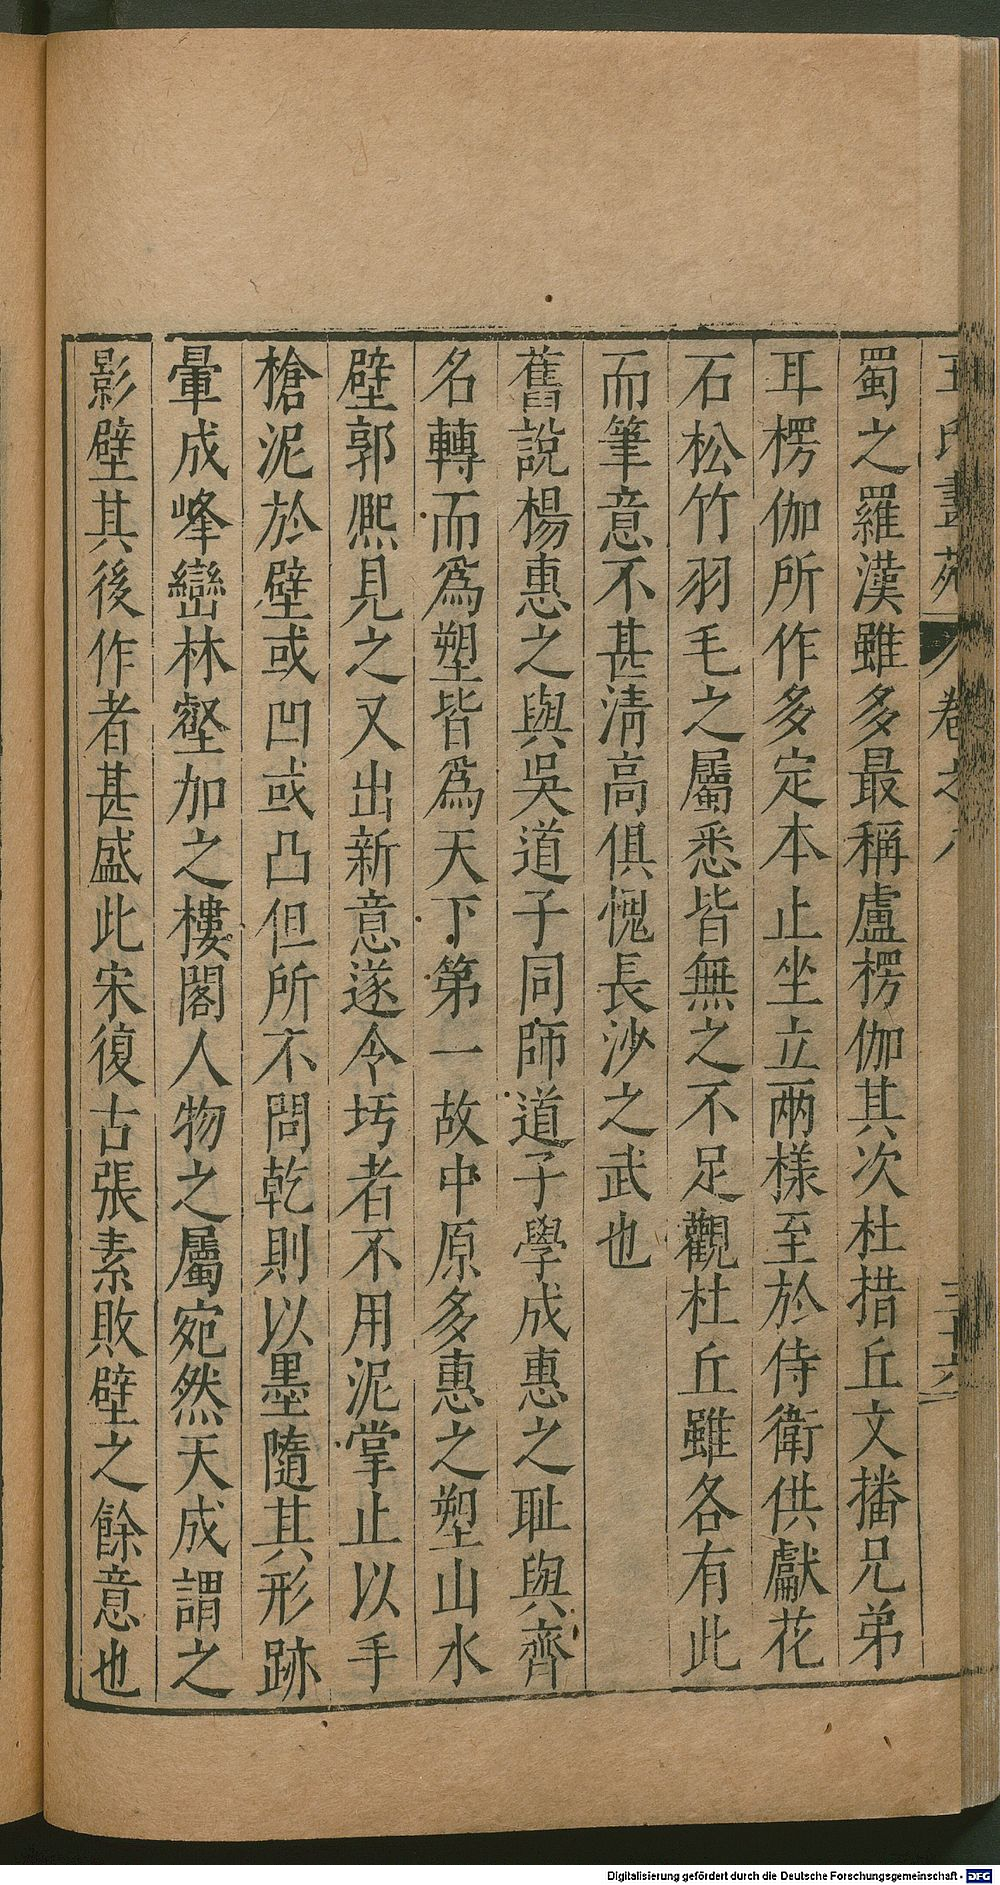 王氏畫苑 卷之八 三十六
蜀之羅漢雖多最稱盧楞伽其次杜措丘文播兄弟
耳楞伽所作多定本止坐立两樣至於侍衛供獻花
石松竹羽毛之屬悉皆無之不足觀杜丘雖各有此
而筆意不甚清高俱愧長沙之武也
舊說楊惠之與吳道子同師道子學成惠之耻與齊
名轉而爲塑皆爲天下第一故中原多惠之塑山水
壁郭熈見之又出新意遂令圬者不用泥掌止以手
槍泥於壁或凹或凸但所不問乾則以墨隨其形跡
暈成峰巒林壑加之樓閣人物之屬宛然天成謂之
影壁其後作者甚盛此宋復古張素敗壁之餘意也
Digitalisierung gefördert durch die Deutsche Forschungsgemeinschaft - DFG